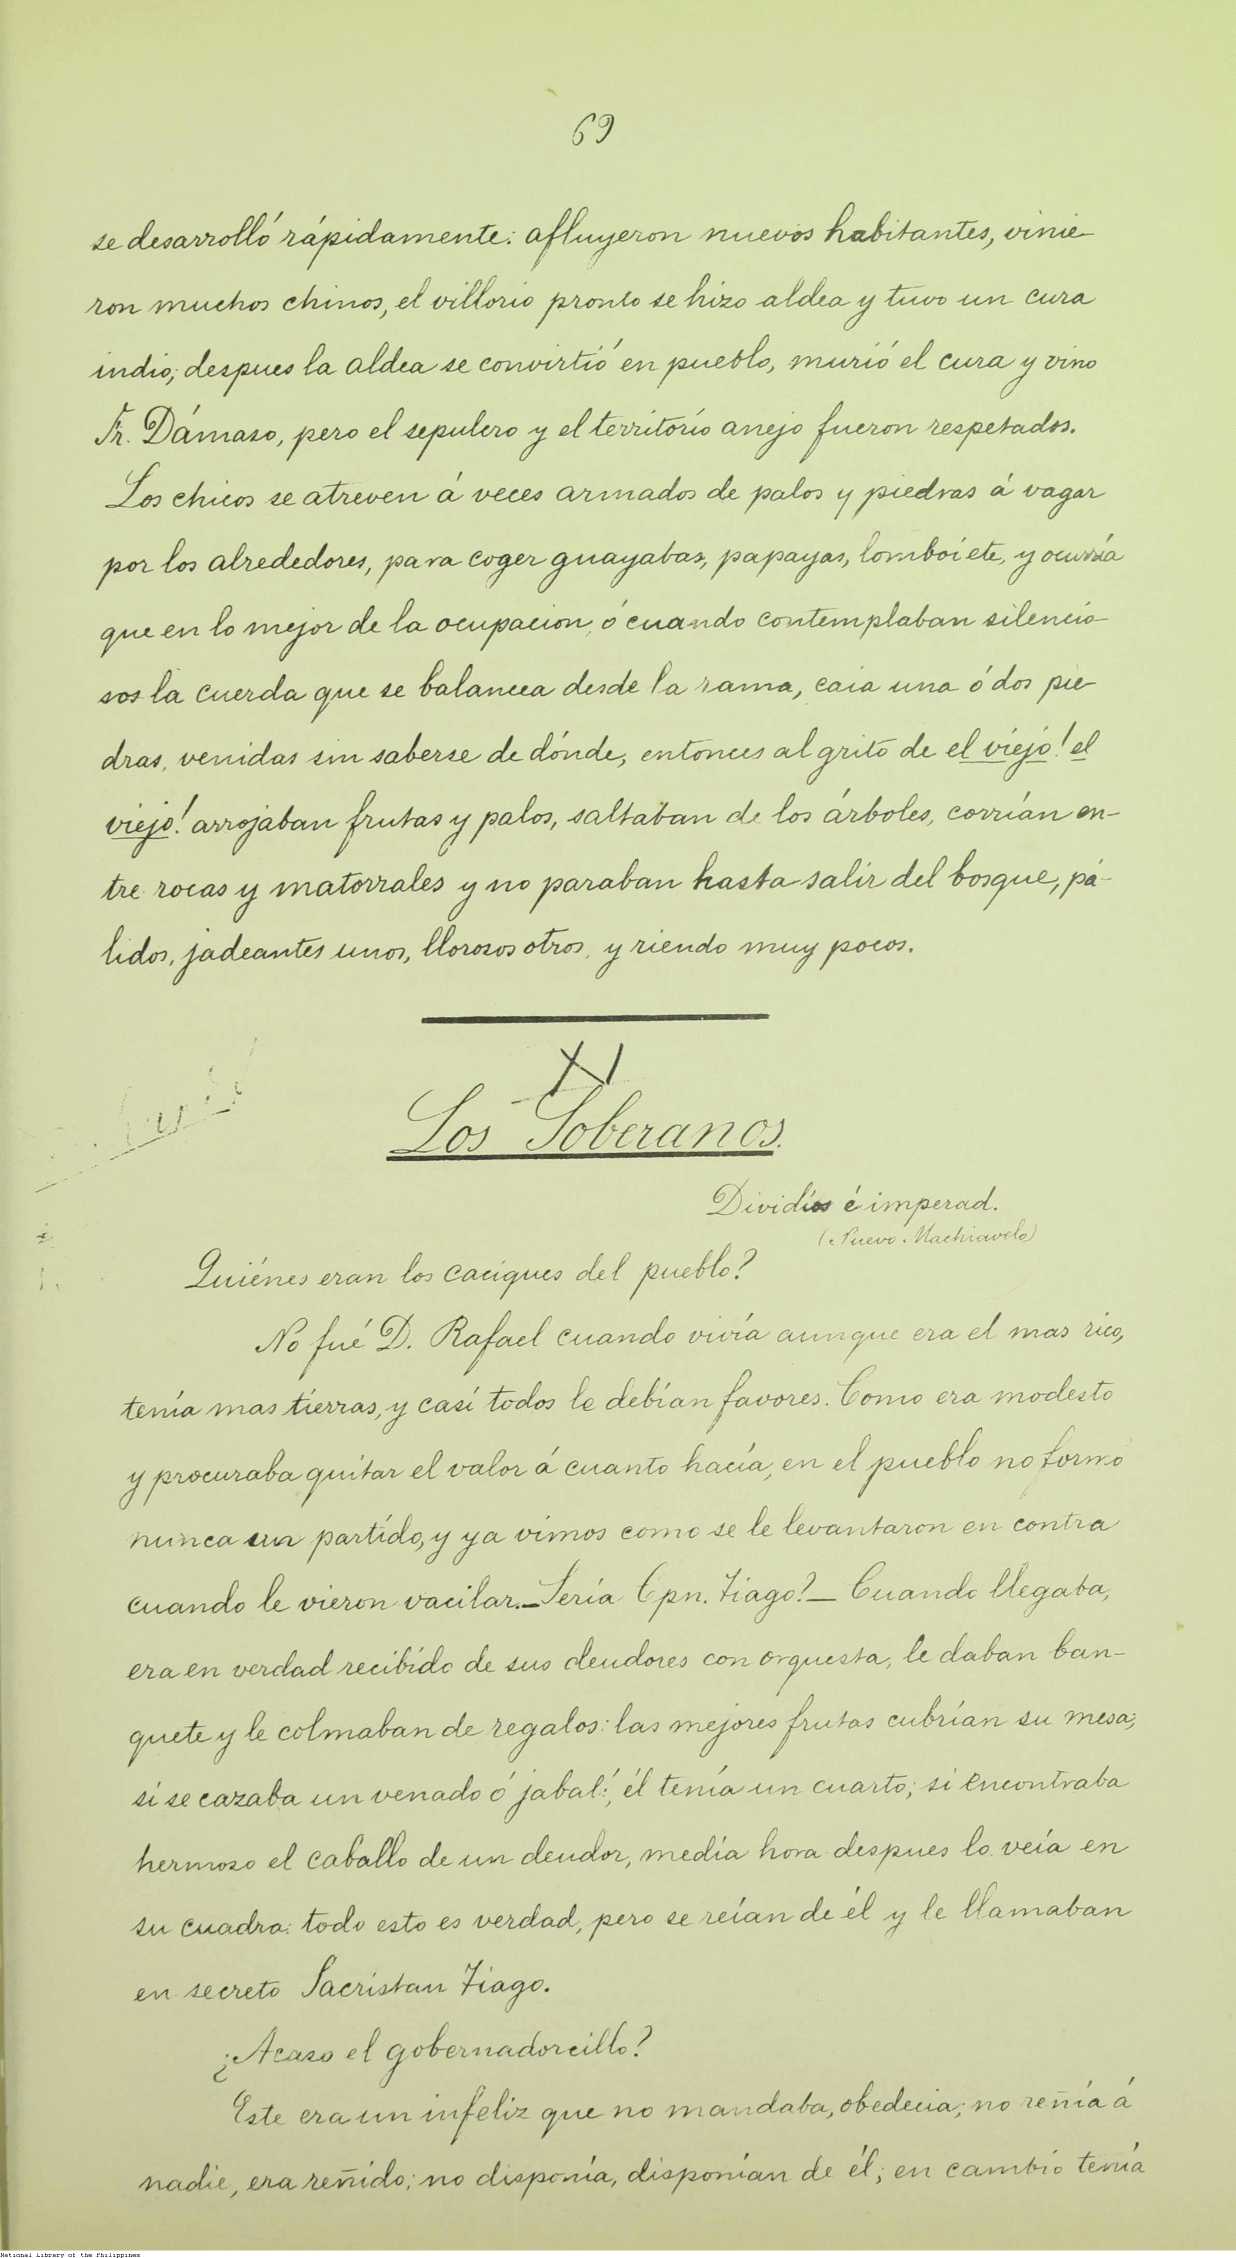 69
se desarrolló rápidamente: afluyeron nuevos habitantes, vinie-
ron muchos chinos, el villorio pronto se hizo aldea y tuvo un cura
indio; despues la aldea se convirtió en pueblo, murió el cura y vino
Fr. Dámaso, pero el sepulcro y el territorio anejo fueron respetados.
Los chicos se atreven á veces armados de palos y piedras á vagar
por los alrededores, para coger guayabas, papayas, lomboi etc, y ocurría
que en lo mejor de la ocupacion, ó cuando contemplaban silencio-
sos la cuerda que se balancea desde la rama, caia una ó dos pie-
dras, venidas sin saberse de dónde; entonces al grito de el viejo! el
viejo! arrojaban frutas y palos, saltaban de los árboles, corrían en-
tre rocas y matorrales y no paraban hasta salir del bosque, pá-
lidos, jadeantes unos, llorosos otros, y riendo muy pocos.
XI
Los Soberanos.
Dividíos é imperad.
(Nuevo Machiavelo)
Quiénes eran los caciques del pueblo?
No fué D. Rafael cuando vivía aunque era el mas rico,
tenía mas tierras, y casi todos le debían favores. Como era modesto
y procuraba quitar el valor á cuanto hacía, en el pueblo no formó
nunca su partido, y ya vimos como se le levantaron en contra
cuando le vieron vacilar.—Sería Cpn. Tiago?— Cuando llegaba,
era en verdad recibido de sus deudores con orquesta, le daban ban-
quete y le colmaban de regalos: las mejores frutas cubrían su mesa;
si se cazaba un venado ó jabalí, él tenía un cuarto; si encontraba
hermoso el caballo de un deudor, media hora despues lo veía en
su cuadra: todo esto es verdad, pero se reían de él y le llamaban
en secreto Sacristan Tiago.
¿Acaso el gobernadorcillo?
Este era un infeliz que no mandaba, obedecia; no reñía á
nadie, era reñido; no disponía, disponían de él; en cambio tenía
National Library of the Philippines